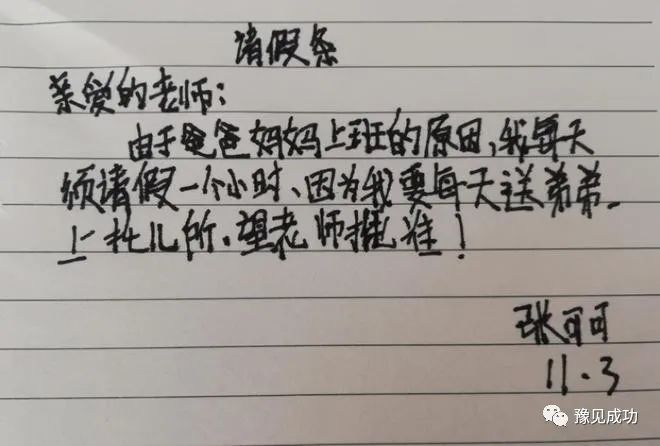 请假条
亲爱的老师:
由于爸爸妈妈上班的原因,我每天
须请假一个小时、因为我要每天送弟弟.
上托儿所.望老师批准!
张可可
11.3
豫见成功